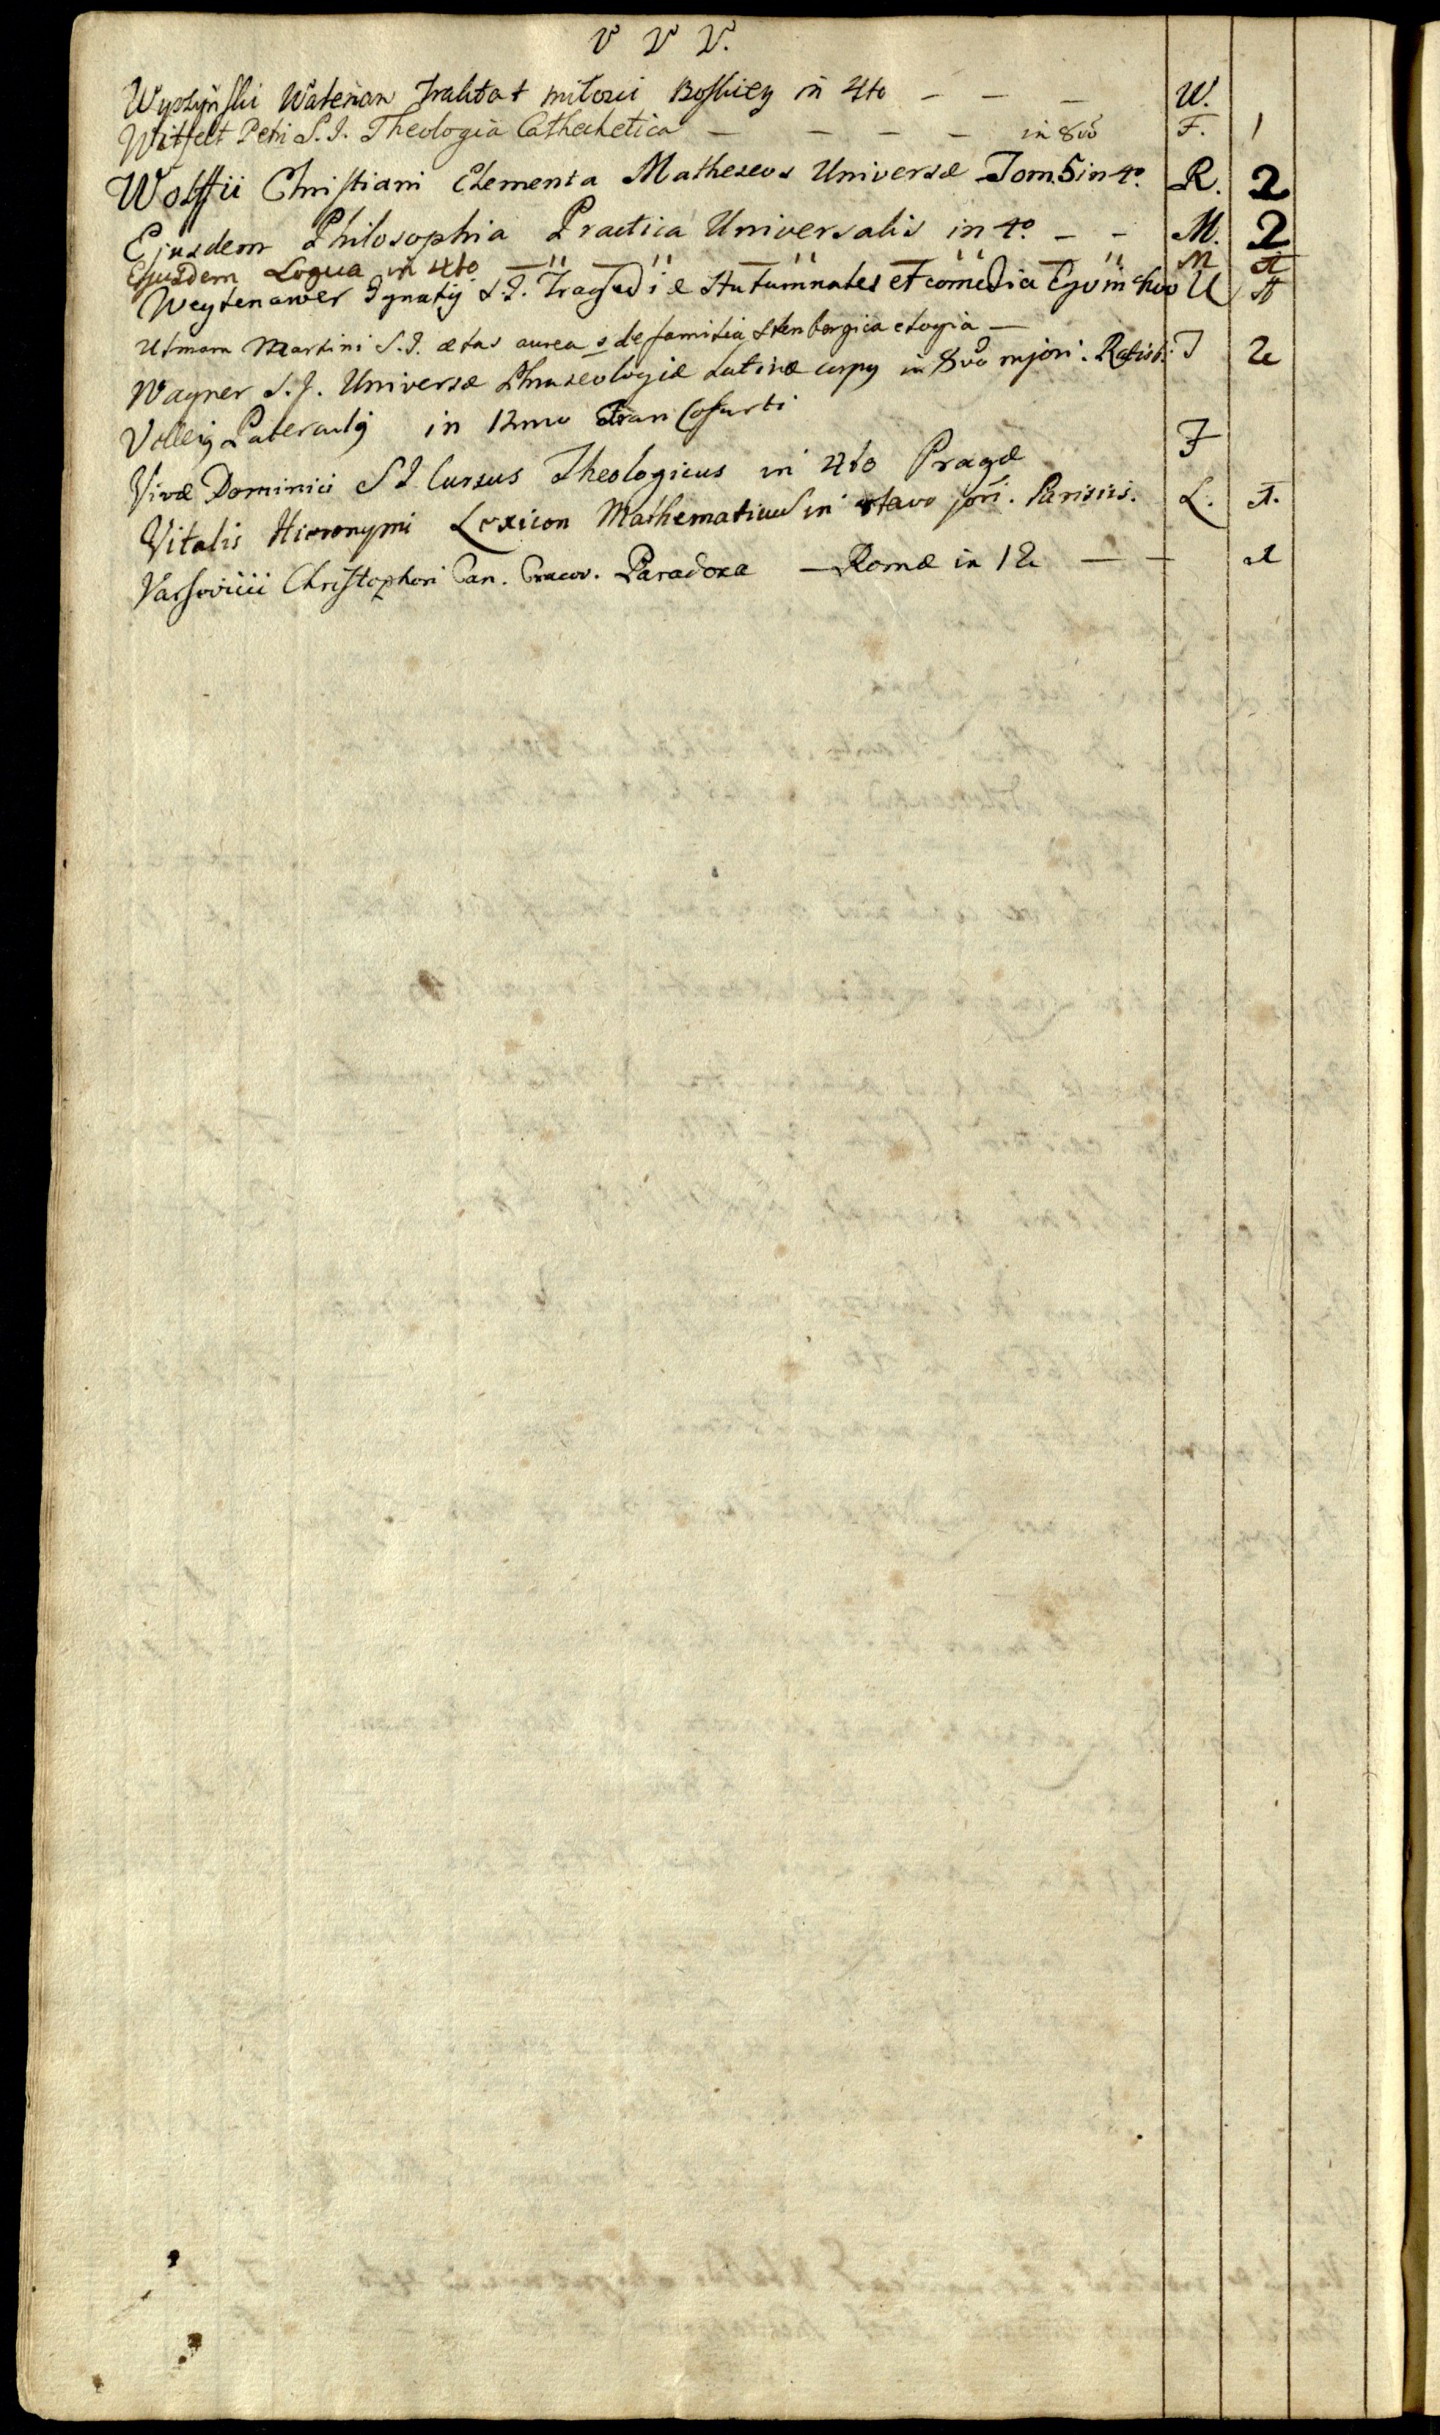 V V V.
Wyszyński Waterian Traktat miłosci Boskiey in 4to — — — W.
Witfelt Petri S. J. Theologia Cathechetica — — — — in 8vo F. 1
Wolffii Christiani Elementa Matheseos Universæ Tom 5 in 4o. R. 2
Ejusdem Philosophia Practica Universalis in 4o — — M. 2
Ejusdem Logica in 4to M
Weytenawer Ignatij S. J. Tragediæ Autumnales et comedia Ego in 8vo U
Utmam Martini S. J. ætas aurea s de familia Stenbergica elogia —
Wagner S. J. Universæ Phraseologiæ Latinæ corpg in 8vo mjori. Ratisb: J 2
Velleij Paterculij in 12mo Francofurti
Vivæ Dominici S J Cursus Theologicus in 4to Pragæ F
Vitalis Hieronymi Lexicon Mathematicum in octavo jori. Parisiis. L.
Varsovicii Christophori Can. Cracov. Paradoxa — Romæ in 12 — —